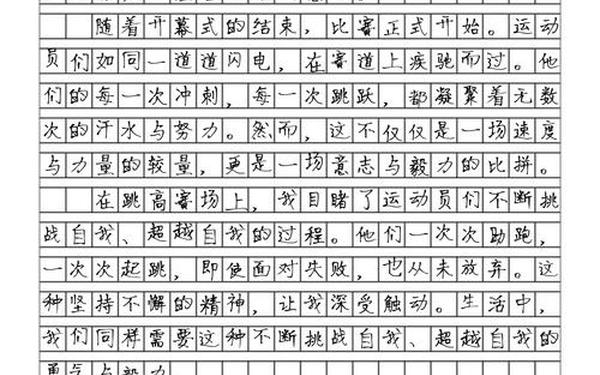 随着开幕式的结束，比赛正式开始。运动
员们如同一道道闪电，在赛道上疾驰而过。他
们的每一次冲刺，每一次跳跃，都凝聚着无数
次的汗水与努力。然而，这不仅仅是一场速度
与力量的较量，更是一场意志与毅力的比拼。
在跳高赛场上，我目睹了运动员们不断挑
战自我、超越自我的过程。他们一次次助跑，
一次次起跳，即使面对失败，也从未放弃。这
种坚持不懈的精神，让我深受触动。生活中，
我们同样需要这种不断挑战自我、超越自我的
勇气与毅力